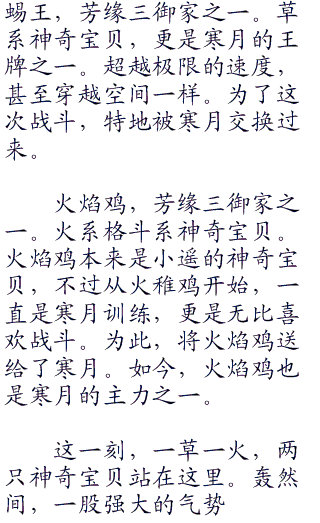 蜴王，芳缘三御家之一。草
系神奇宝贝，更是寒月的王
牌之一。超越极限的速度，
甚至穿越空间一样。为了这
次战斗，特地被寒月交换过
来。
火焰鸡，芳缘三御家之
一。火系格斗系神奇宝贝。
火焰鸡本来是小遥的神奇宝
贝，不过从火稚鸡开始，一
直是寒月训练，更是无比喜
欢战斗。为此，将火焰鸡送
给了寒月。如今，火焰鸡也
是寒月的主力之一。
这一刻，一草一火，两
只神奇宝贝站在这里。轰然
间，一股强大的气势